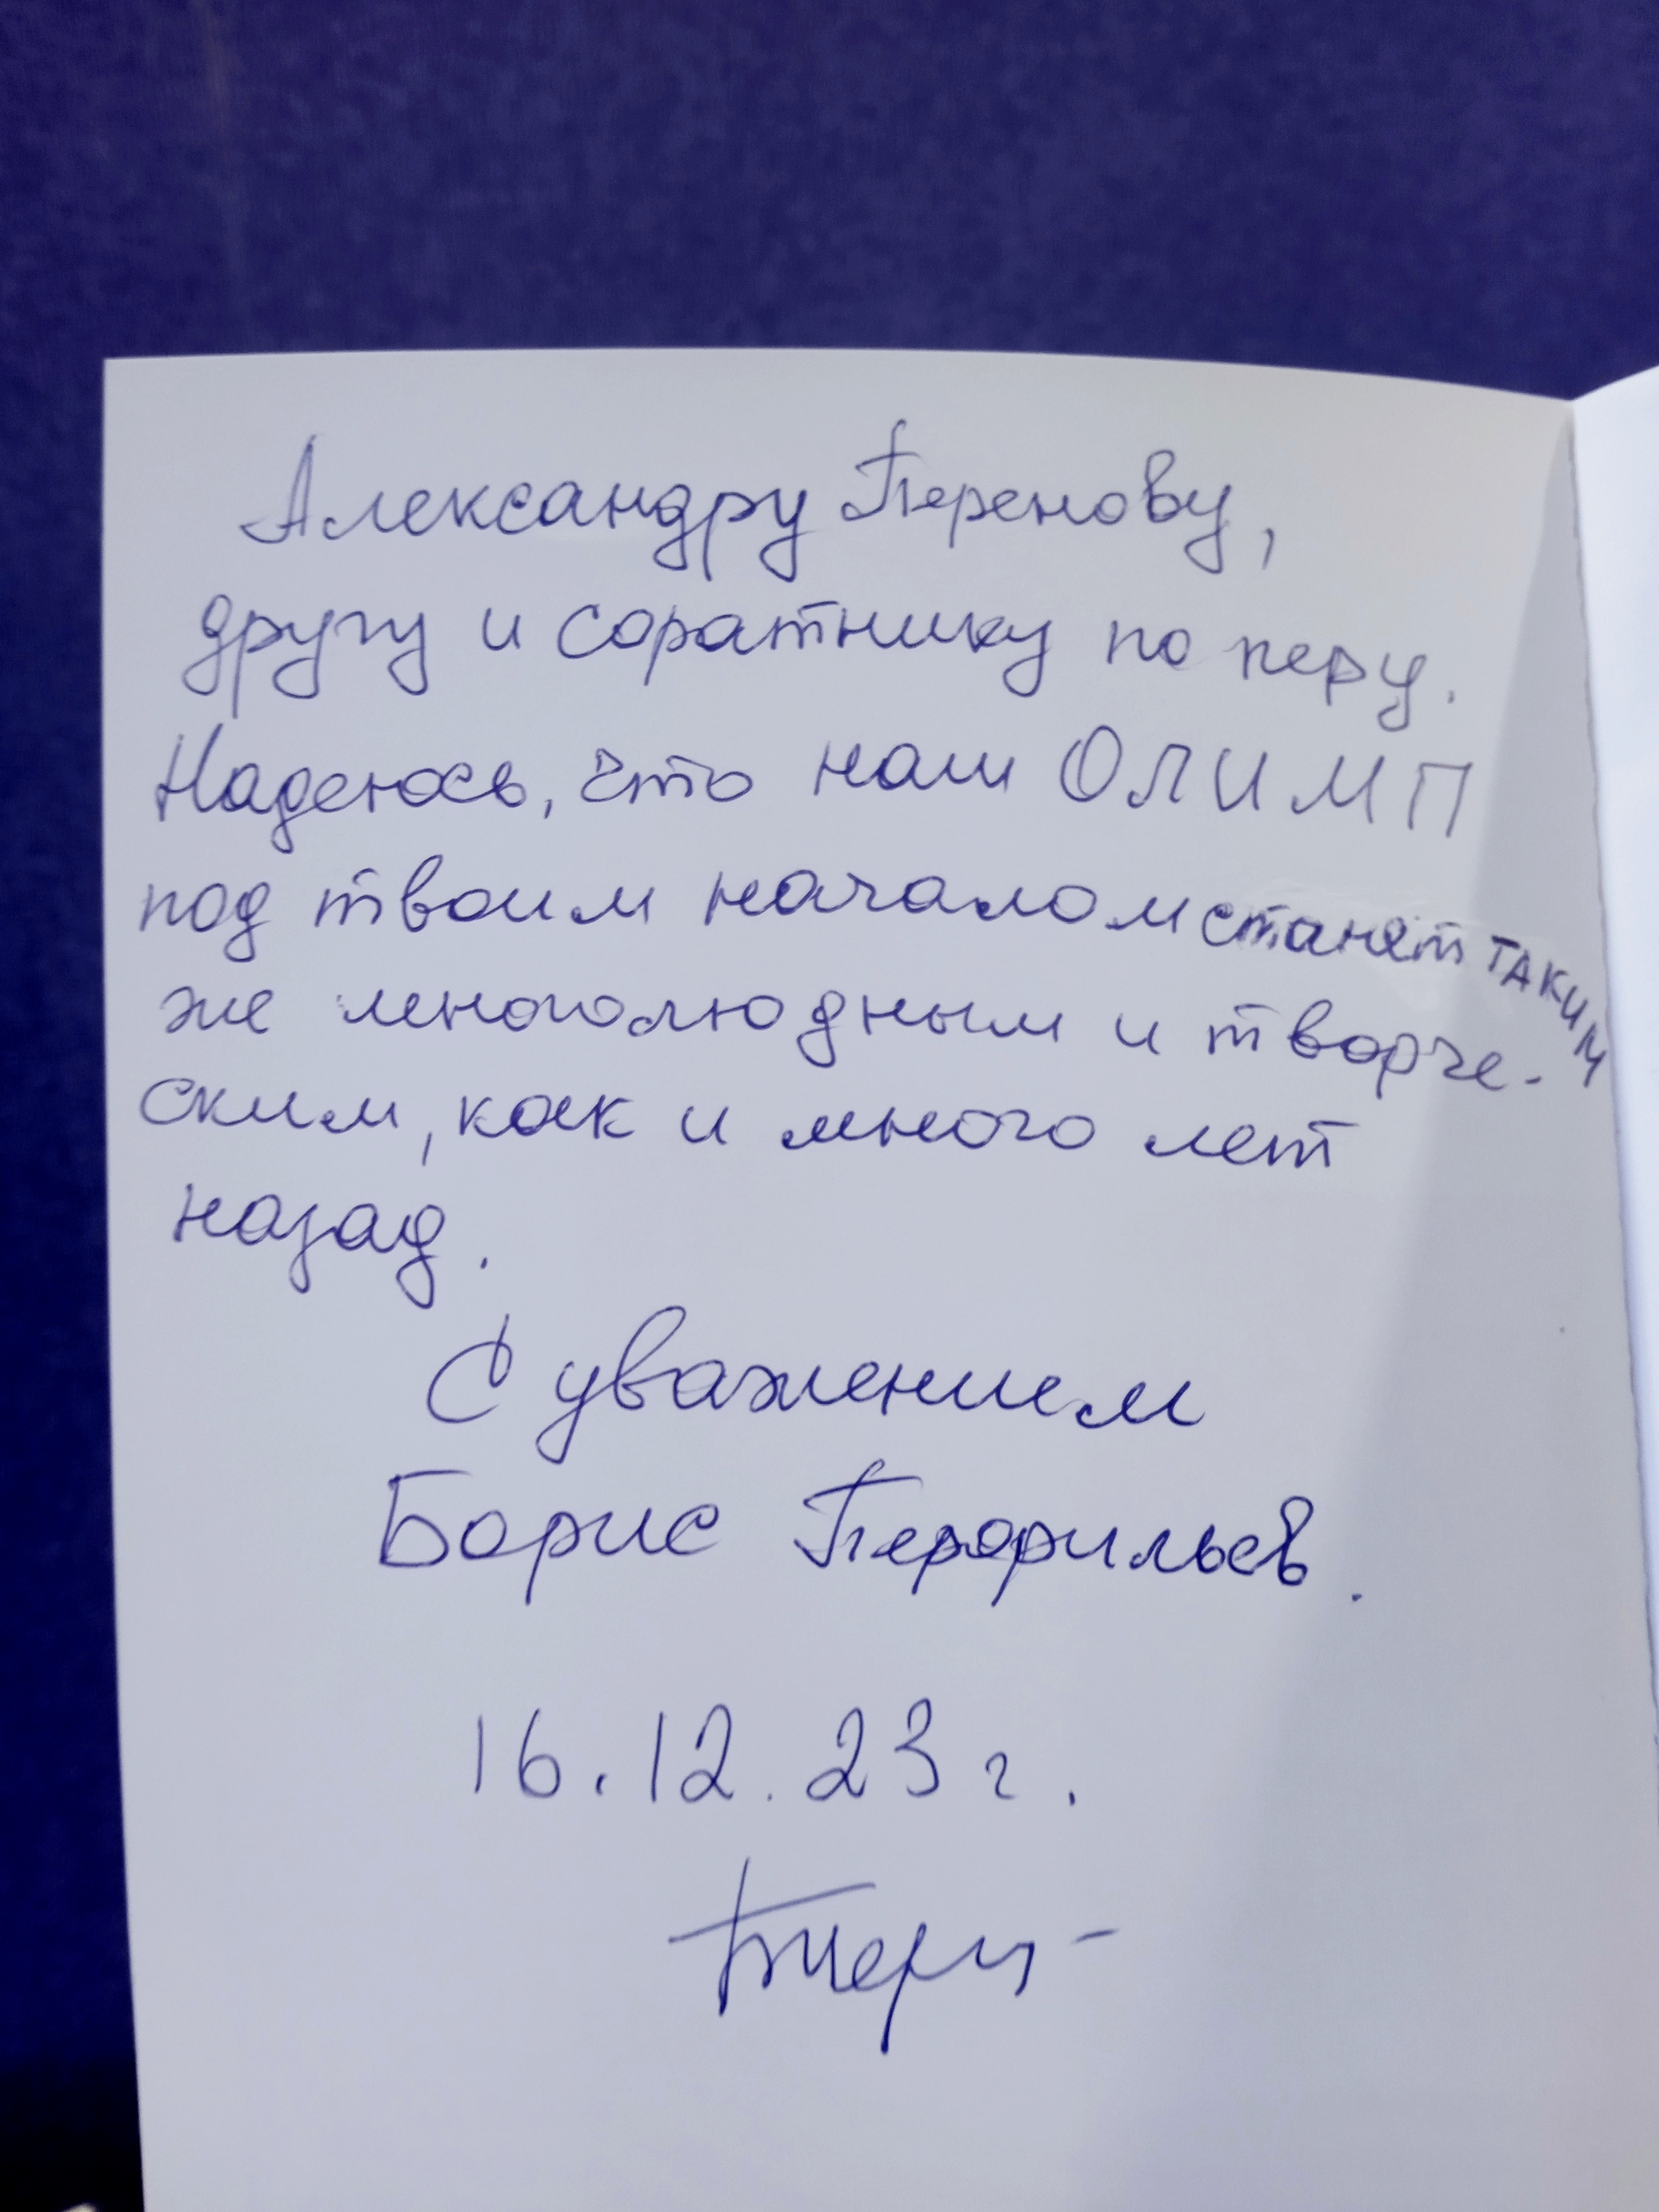 Александру Перенову,
другу и соратнику по перу.
Надеюсь, что наш ОЛИМП
под твоим началом станет ТАКИМ
же многолюдным и творче-
ским, как и много лет
назад.
С уважением
Борис Перфильев.
16.12.23 г.